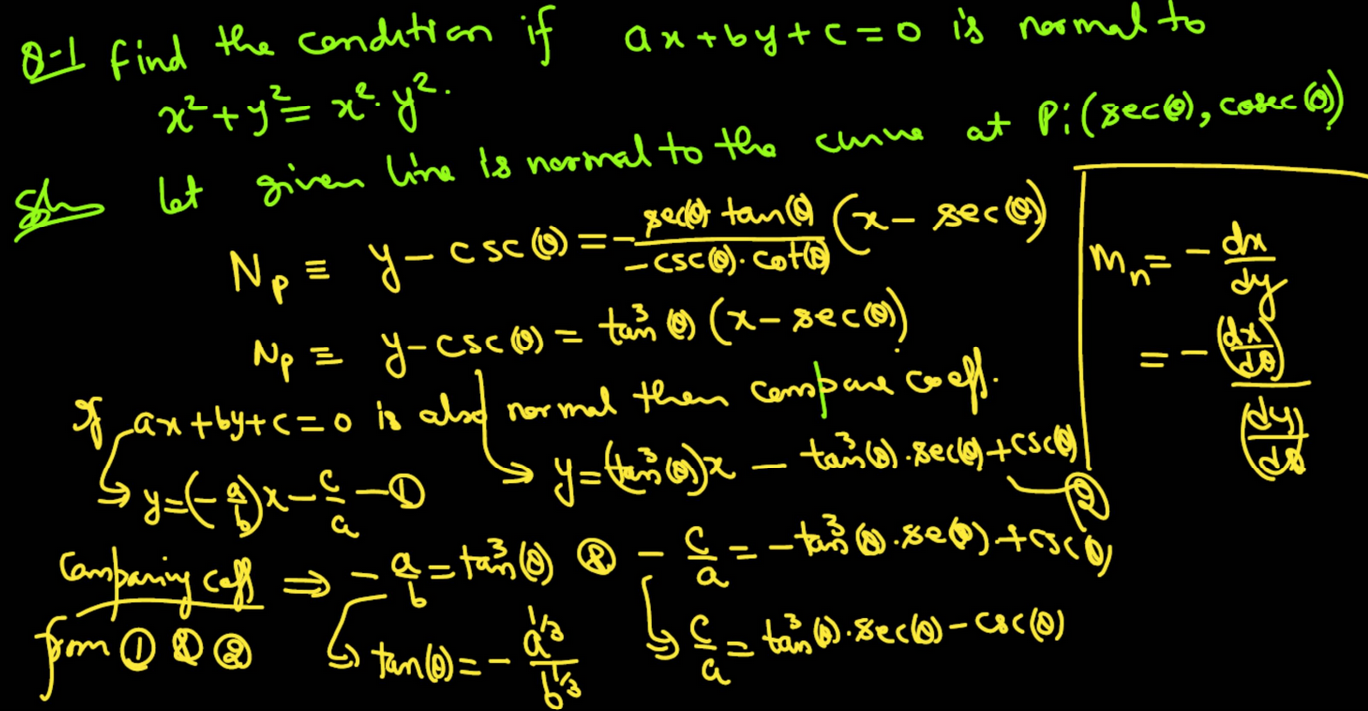 Q-1 find the condition if ax+by+c=0 is normal to
x²+y²=x².y².
Soln let given line is normal to the curve at P:(sec(θ), cosec(θ))
N_p ≡ y-csc(θ)=-\frac{sec(θ).tan(θ)}{-csc(θ).cot(θ)}(x-sec(θ))
N_p ≡ y-csc(θ)=tan³(θ)(x-sec(θ))
If ax+by+c=0 is also normal then compare coeff.
↳ y=(-\frac{a}{b})x-\frac{c}{a} -①
→ y=(tan³(θ))x - tan³(θ).sec(θ)+csc(θ) -②
Comparing coeff ⇒ -\frac{a}{b}=tan³(θ) & -\frac{c}{a}=-tan³(θ).sec(θ)+csc(θ)
from ① & ② ↳ tan(θ)=-\frac{a^{1/3}}{b^{1/3}} ↳ \frac{c}{a}=tan³(θ).sec(θ)-csc(θ)
m_n=-\frac{dx}{dy}
=-\frac{(\frac{dx}{dθ})}{(\frac{dy}{dθ})}